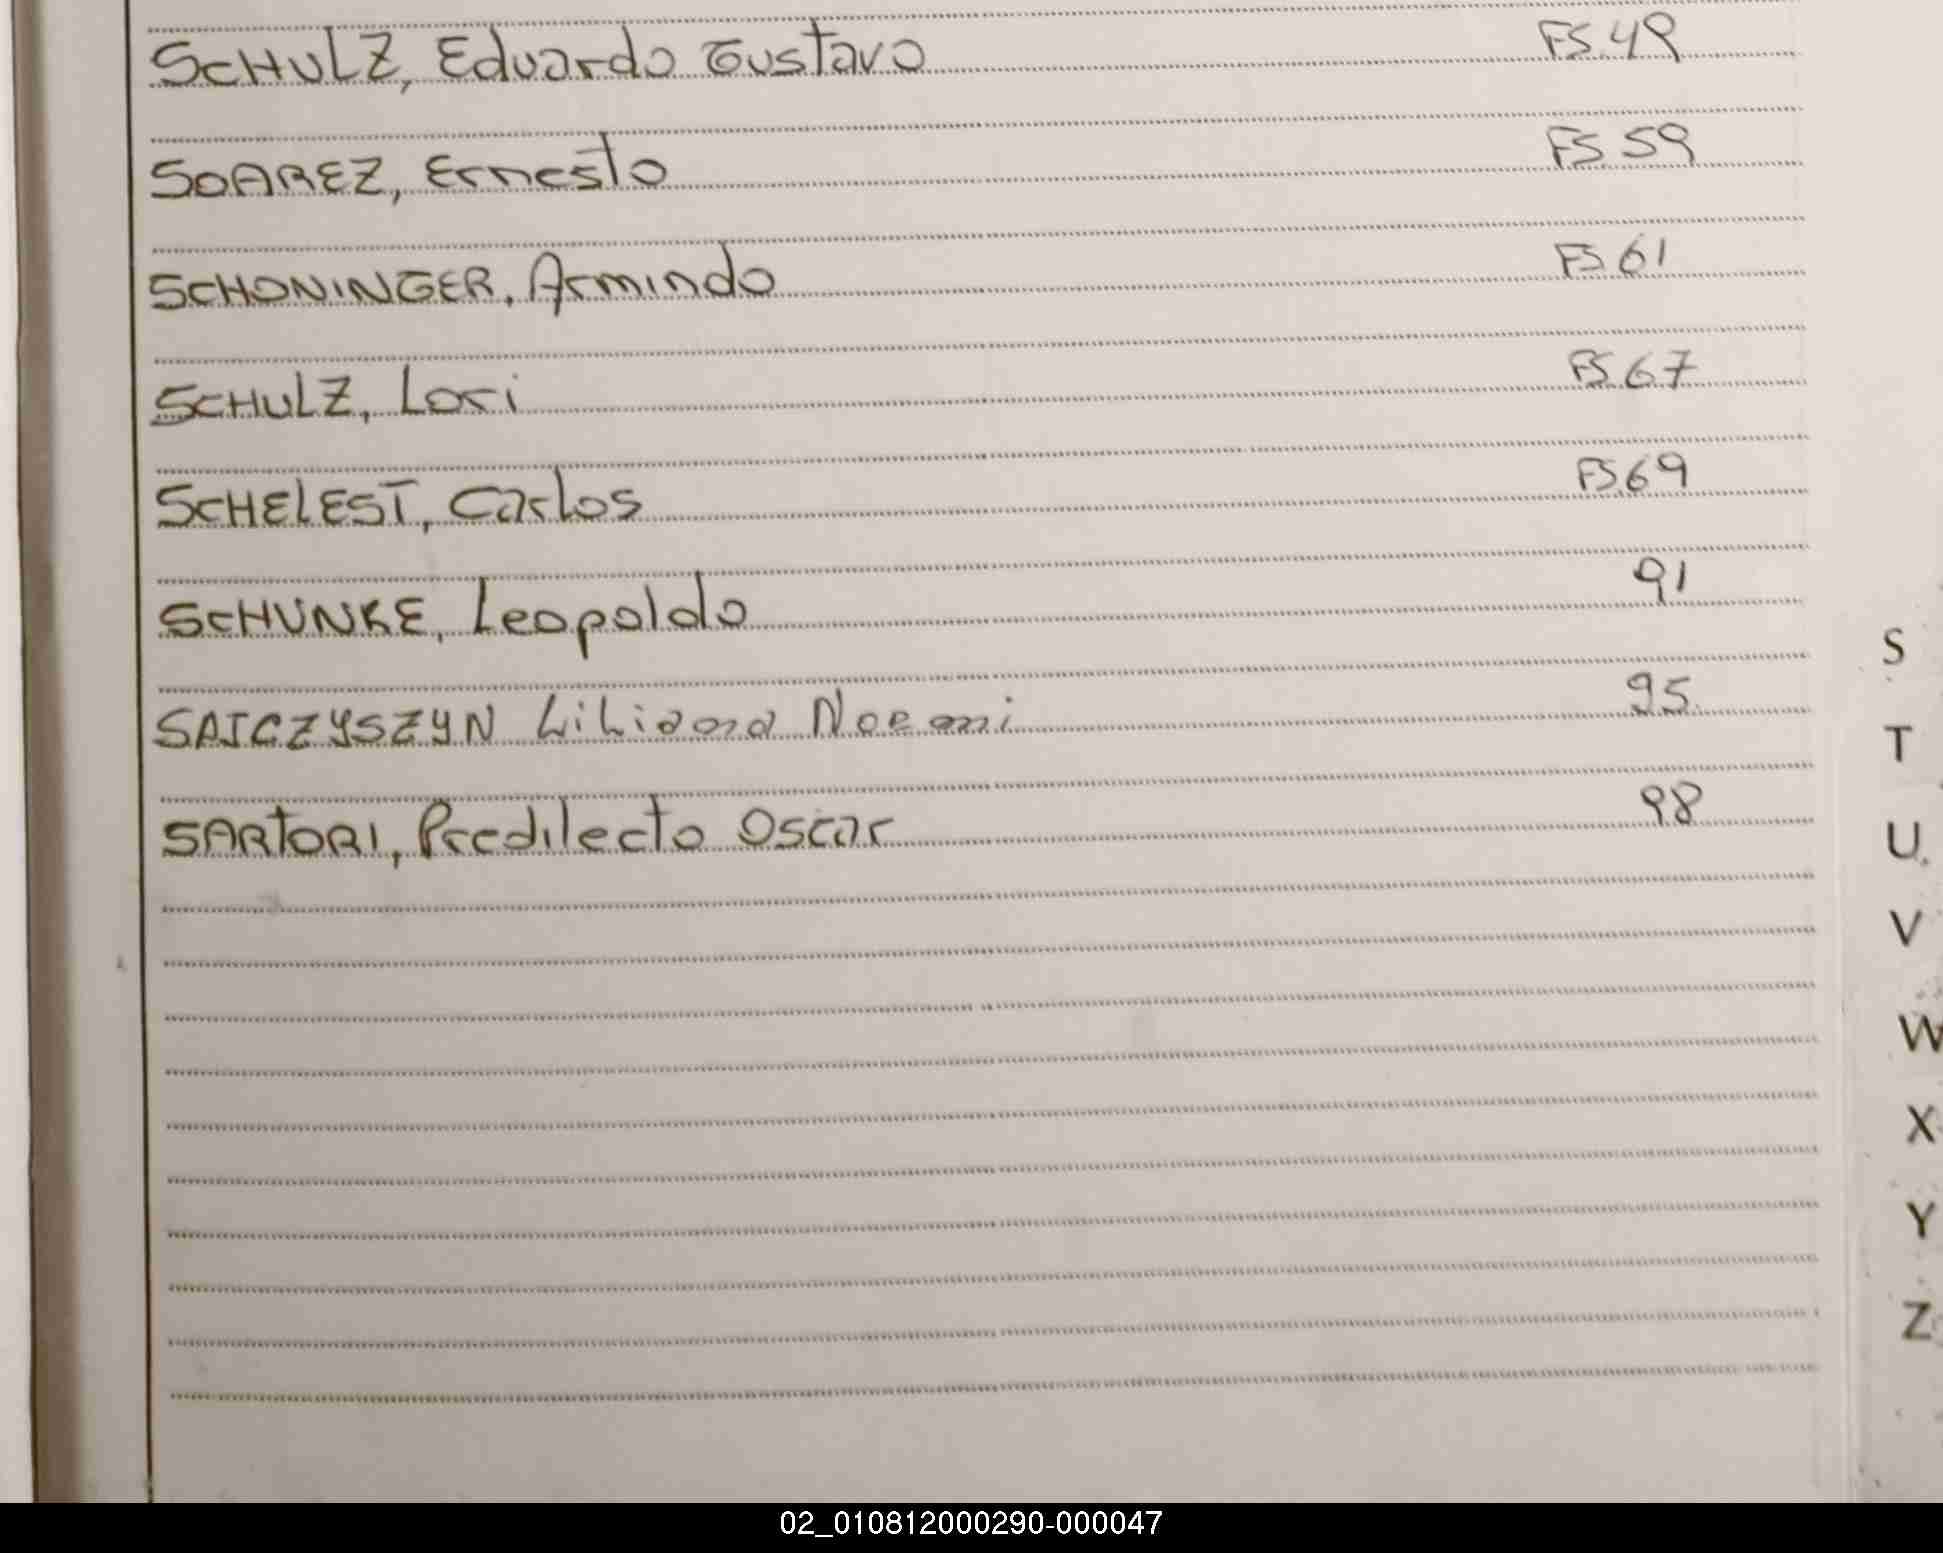 SCHULZ, Eduardo Gustavo FS.49
SOAREZ, Ernesto FS 59
SCHONINGER, Armindo FS 61
SCHULZ, Lori FS.67
SCHELEST, Carlos FS.69
SCHUNKE, Leopoldo 91
SAICZYSZYN Liliana Noemi 95.
SARTORI, Predilecto Oscar 98
S
T
U
V
W
X
Y
Z
02_010812000290-000047